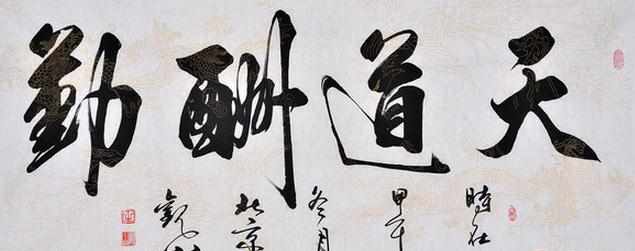 天道酬勤
時在
甲午
冬月
北京